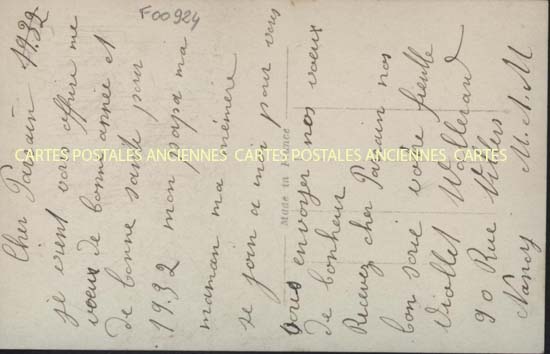 F00924
Cher Parrain 1932
je vient vous offrire me
voeux de bonne année et
de bonne santé pour
1932 mon papa ma
maman ma mémère
se join a moi pour vous
vous envoyer nos voeux
de bonheur
Recevez cher Parrain nos
bon votre
Viollet
90 Rue Villers
Nancy M. M
Made in France
CARTES POSTALES ANCIENNES CARTES POSTALES ANCIENNES CARTES POSTALES ANCIENNES